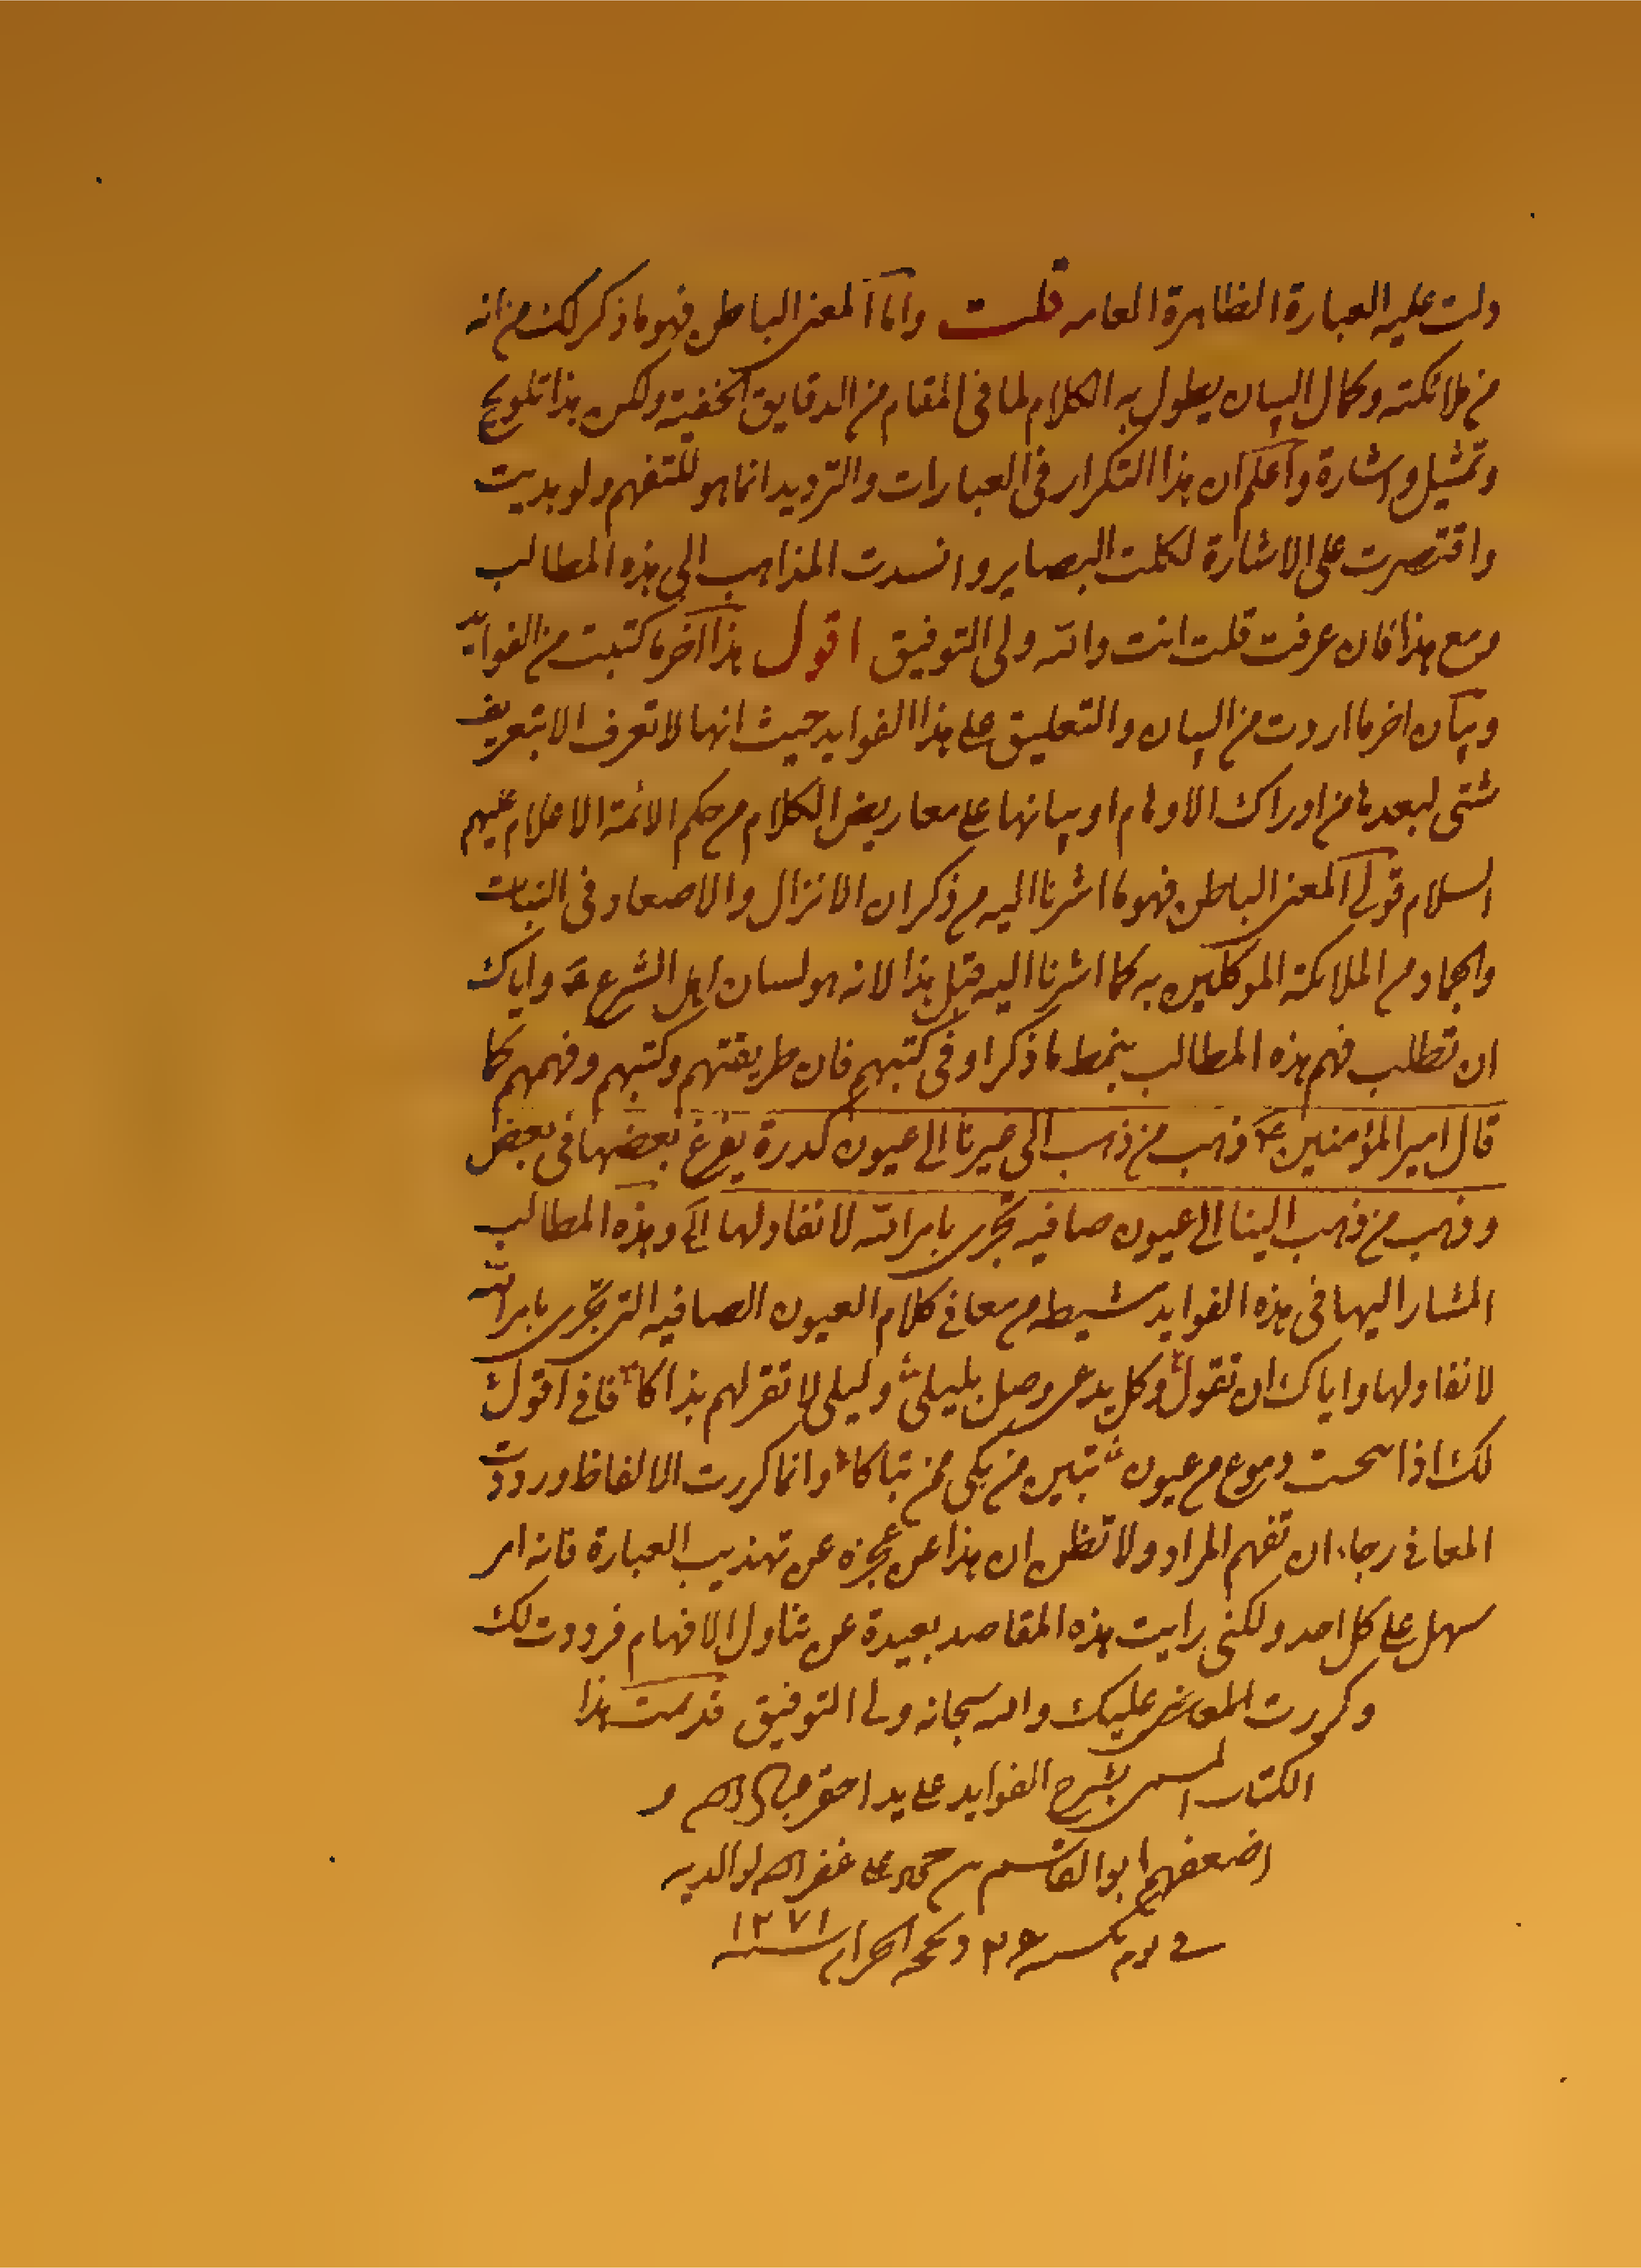 دلت عليه العبارة الظاهرة العامه قلت واما المعنى الباطن فهو ما ذكر لك من انه
من ملائكته وكمال البيان يطول به الكلام لما فى المقام من الدقايق الخفية ولكن هذا تلويح
وتمثيل واشارة واعلم ان هذا التكرار فى العبارات والترديد انما هو للتفهم ولو
واقتصرت على الاشارة لكلت البصاير وانسدت المذاهب الى هذه المطالب
ومع هذا فان عرفت قلت انت والله ولى التوفيق اقول هذا اخر ما كتبت من الفوايد
وبيان اخر ما اردت من البيان والتعليق على هذا الفوايد حيث انها لا تعرف الا بتعريف
شتى لبعدها من ادراك الاوهام او بيانها على معاريض الكلام من حكم الائمة الاعلام عليهم
السلام قولى المعنى الباطن فهو ما اشرنا اليه من ذكر ان الانزال والاصعاد فى النبات
والجماد من الملائكة الموكلين به كما اشرنا اليه قبل هذا لانه هو لسان اهل الشرع واياك
ان تطلب فهم هذه المطالب بنمط ما ذكر او فى كتبهم فان طريقتهم وكتبهم وفهمهم كما
قال امير المؤمنين ع ذهب من ذهب الى غيرنا الى عيون كدرة يفرغ بعضها فى بعض
وذهب من ذهب الينا الى عيون صافيه تجرى بامر الله لا نفاد لها الخ وهذه المطالب
المشار اليها فى هذه الفوايد من معانى كلام العيون الصافيه التى تجرى بامر الله
لا نفاد لها واياك ان تقول وكل يدعى وصل بليلى وليلى لا تقر لهم بذاكا فانى اقول
لك اذا سحت دموع من عيون تبين من بكى ممن تباكا وانما كررت الالفاظ ورددت
المعانى رجاء ان تفهم المراد ولا تظن ان هذا عن عجزه عن تهذيب العبارة فانه امر
سهل على كل احد ولكنى رايت هذه المقاصد بعيدة عن تناول الافهام فرددت لك
وكررت المعنى عليك والله سبحانه ولى التوفيق قد تمت هذا
الكتاب المسمى بشرح الفوايد على يد احقر عباد الله و
اضعفهم ابو القاسم بن محمد على غفر الله لوالديه
فى يوم ذيحجه الحرام سنه ١٢٧١